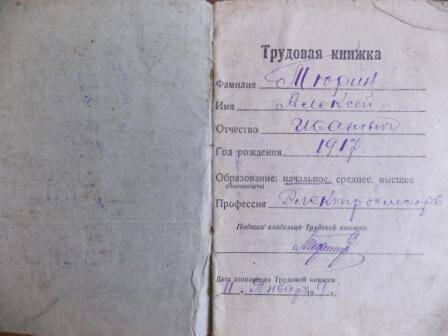 Трудовая книжка
Фамилия Тюрин
Имя Алексей
Отчество Иванович
Год рождения 1917.
Образование: начальное, среднее, высшее
(Подчеркнуть)
Профессия Электрослесарь
Подпись владельца Трудовой книжки
Дата заполнения Трудовой книжки
11. Января 19 г.